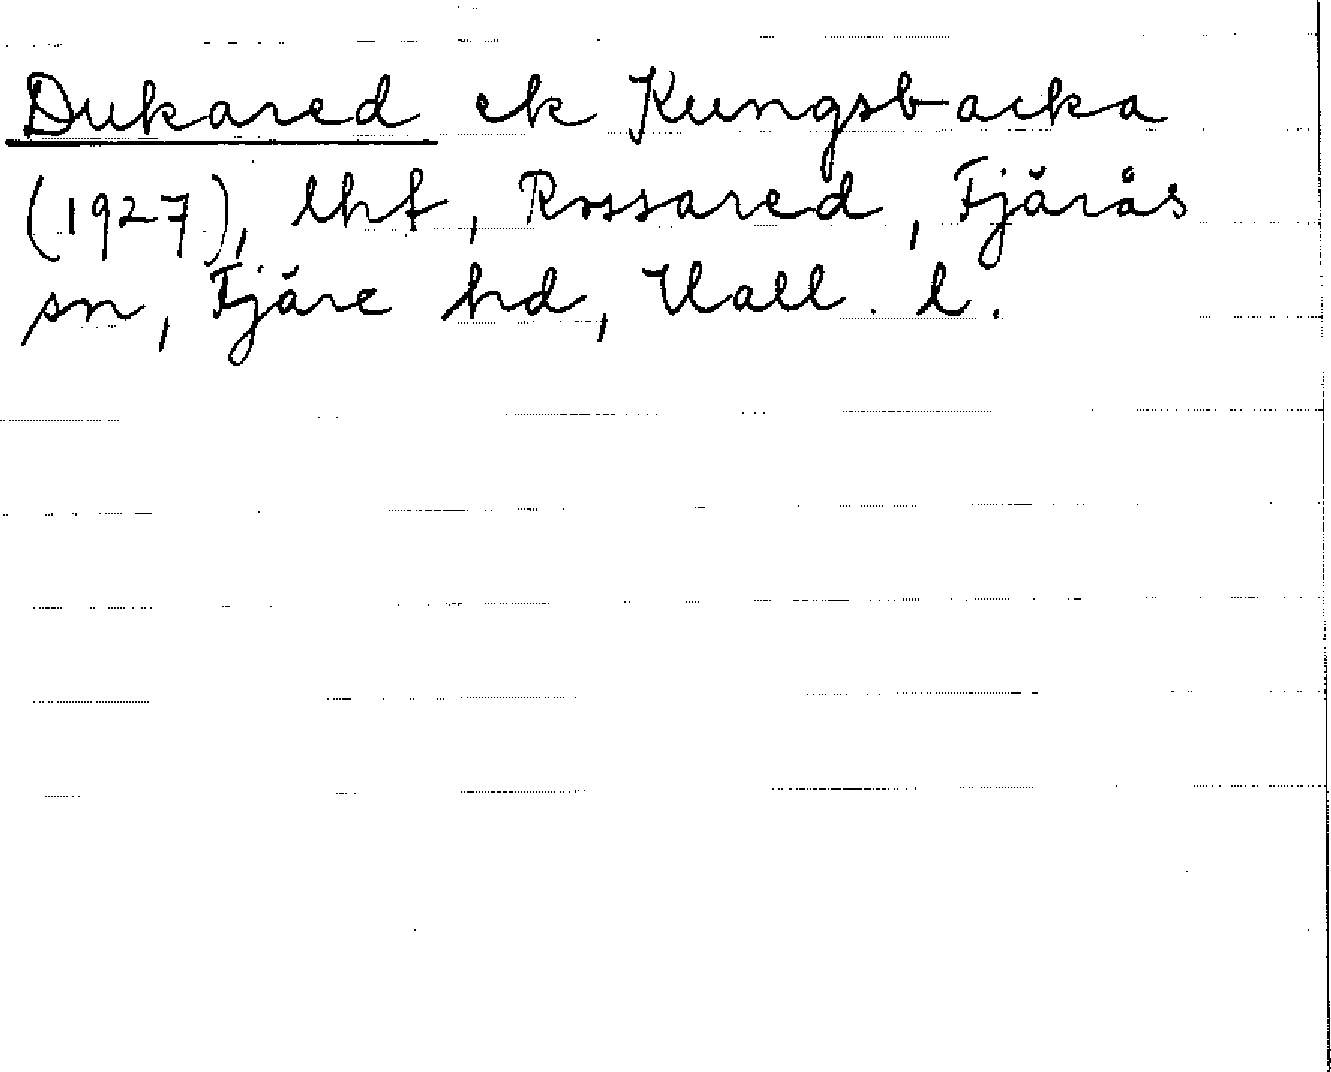 Dukared ek Kungsbacka
(1927), lhf, Rossared, Fjärås
sn, Fjäre hd, Hall. l.